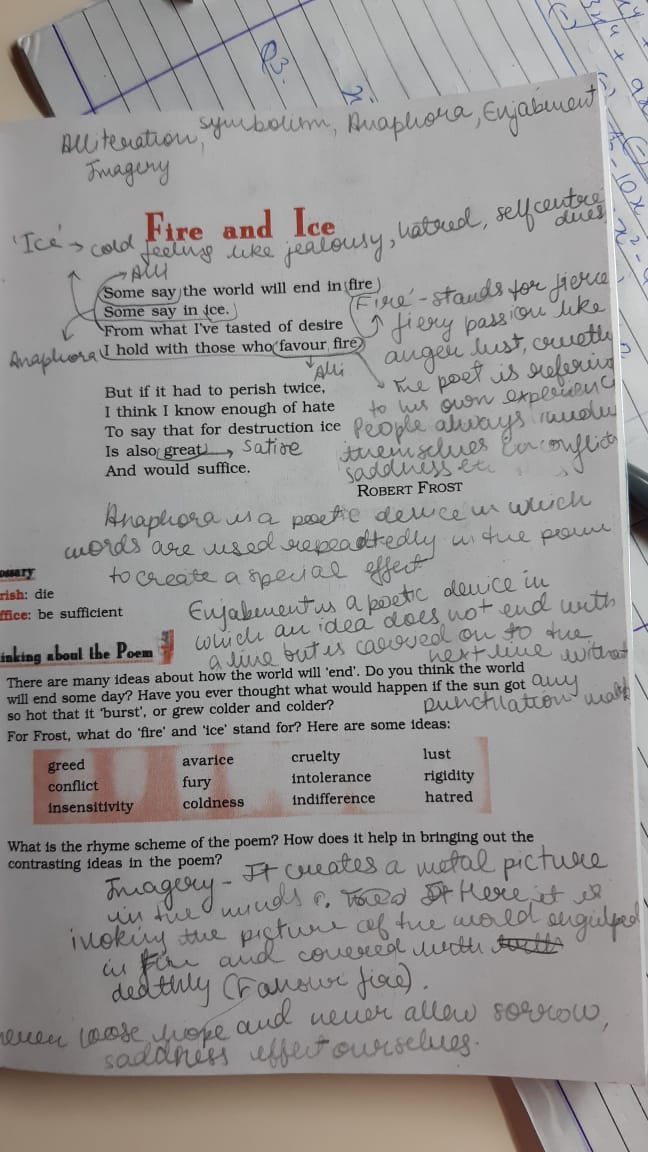 Q3.
Alliteration, symbolism, Anaphora, Enjabment
Imagery
Fire and Ice
'Ice' → cold feeling like jealousy, hatred, selfcentre
dness
→ Alli
Some say the world will end in fire
Some say in ice.
From what I've tasted of desire
I hold with those who favour fire.
Anaphora
Alli
'Fire' - stands for fierce
fiery passion like
anger lust, cruelty
the poet is refering
to his own experienc
People always
themselves in conflict
saddness etc
But if it had to perish twice,
I think I know enough of hate
To say that for destruction ice
Is also great → Satire
And would suffice.
ROBERT FROST
Anaphora is a poetic device in which
words are used repeadtedly in the poem
to create a special effect
ossary
rish: die
ffice: be sufficient
Enjabment is a poetic device in
which an idea does not end with
a line but is carried on to the
next line without
any
punctilation mark
inking about the Poem
There are many ideas about how the world will 'end'. Do you think the world
will end some day? Have you ever thought what would happen if the sun got
so hot that it 'burst', or grew colder and colder?
For Frost, what do 'fire' and 'ice' stand for? Here are some ideas:
greed avarice cruelty lust
conflict fury intolerance rigidity
insensitivity coldness indifference hatred
What is the rhyme scheme of the poem? How does it help in bringing out the
contrasting ideas in the poem?
Imagery - It creates a metal picture
in the minds Here it is
invoking the picture of the world engulped
in fire and covered with
deathly (Favour fire).
never loose hope and never allow sorrow,
saddness effect ourselves.